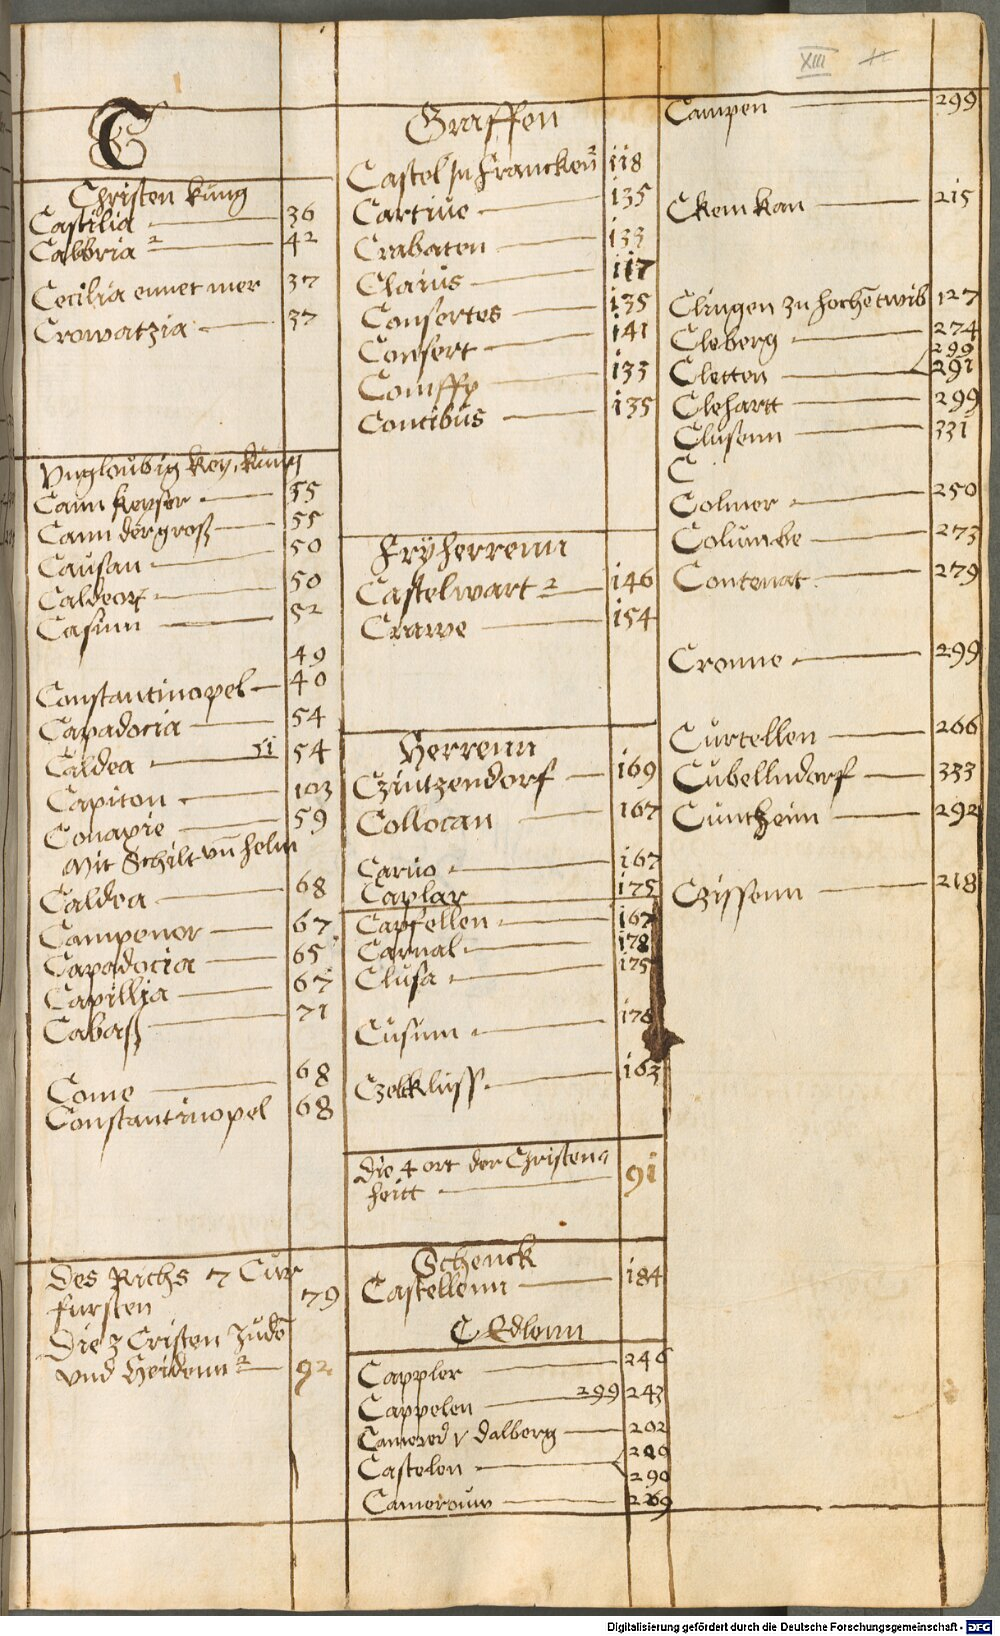 XIII
C
Christen kung
Castilia 36
Calbria 2 42
Cecilia ennet mer 37
Crowatzia 37
Vngloubig key, kung
Cann keyser 55
Cann der groß 55
Causan 50
Caldeorz 50
Casum 52
49
Constantinopel 40
Capadocia 54
Caldea 51 54
Capiton 103
Conapie 59
Mit Schilt vn helm
Caldea 68
Campenor 67
Capadocia 65
Capillia 67
Cabaß 71
Come 68
Constantinopel 68
Des Richs 7 Cur
fursten 79
Die 3 Cristen Judō
vnd Heidenn 2 92
Graffen
Castel jn Francken 2 118
Cartiue 135
Crabaten 133
Claius 117
Consertes 135
Consert 141
Comffy 133
Contibus 135
Fryherrenn
Castelwart 2 146
Crawe 154
Herrenn
Czintzendorf 169
Collocan 167
Caruo 167
Caplar 175
Capfellen 167
Carnal 178
Clusa 175
Cusum 178
Czelkkluss 163
Die 4 ort der Christen
heitt 91
Schenck
Castellenn 184
C Edlenn
Cappler 246
Cappelen 299 243
Camered v Dalberg 202
Castelen 290
Camerouw 269
Campen 299
Ckemkan 215
Clingen zu hochetwil 127
Cleberg 274
299
Cletten 291
Clehartt 299
Clusenn 331
C
Colmer 250
Columbe 273
Contenat 279
Cronne 299
Curtellen 266
Cubellndorf 333
Cuntheim 292
Czissenn 218
Digitalisierung gefördert durch die Deutsche Forschungsgemeinschaft - DFG